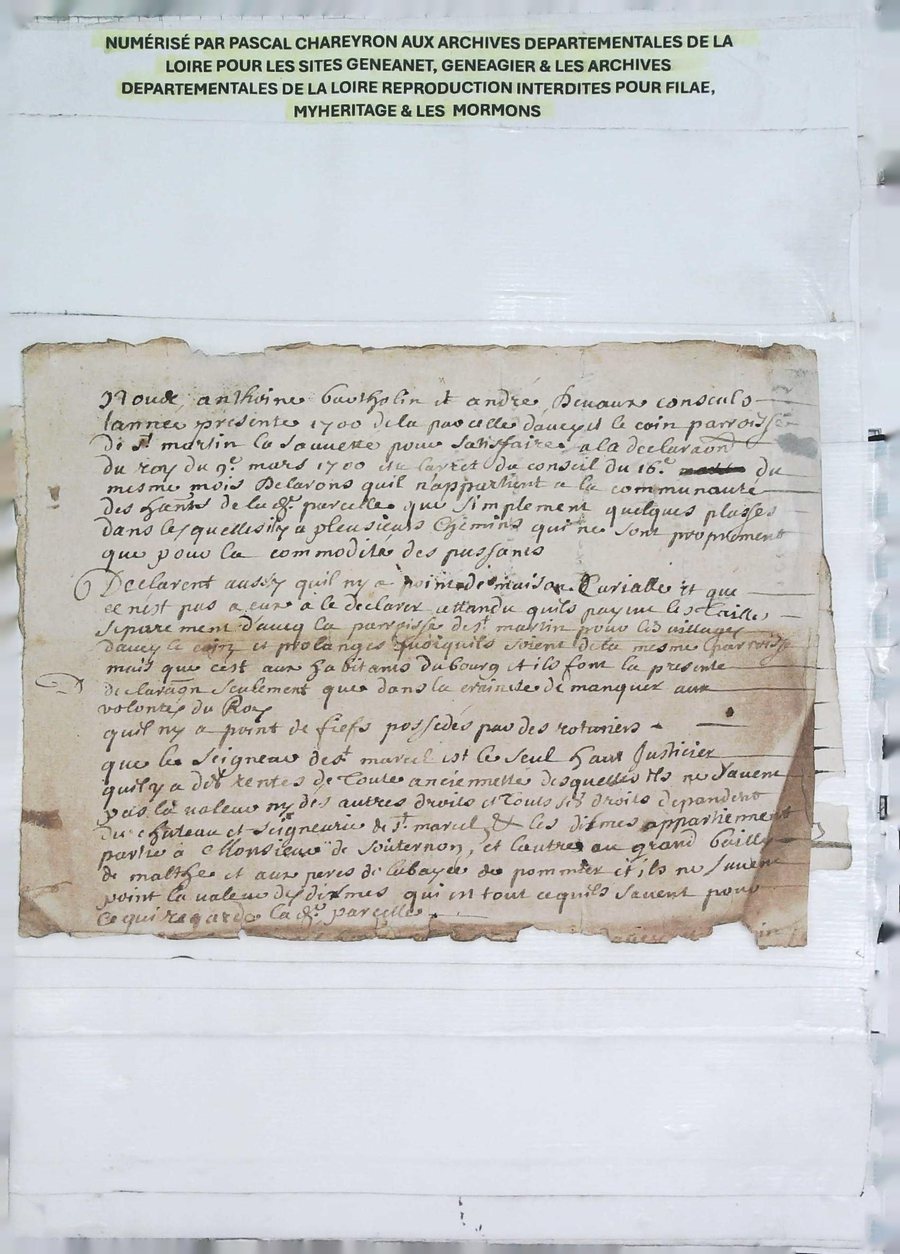 NUMÉRISÉ PAR PASCAL CHAREYRON AUX ARCHIVES DEPARTEMENTALES DE LA
LOIRE POUR LES SITES GENEANET, GENEAGIER & LES ARCHIVES
DEPARTEMENTALES DE LA LOIRE REPRODUCTION INTERDITES POUR FILAE,
MYHERITAGE & LES MORMONS
Nous, anthoine berthelin et andré Devaux consculs
lannée presente 1700 de la parcelle daveyz et le coin parroisse
de st martin la sauveté pour satisfaire a la declaraon
du roy du 9e mars 1700 et a larret du conseil du 16e du
mesme mois Declarons quil nappartient a la communauté
des hants de lad. parcelle que simplement quelques plasses
dans lesquelles il y a pleusieurs chemins qui ne sont proprement
que pour la commodité des passants
Declarent aussy quil ny a point de maison Curialle et que
ce nest pas a eux à le declarer attandu quils payent les tailles
separement davecq la parroisse de st martin pour les villages
davey le coin et prolanges quoiquils soient de la mesme parroisse
mais que cest aux habitants du bourg et ils font la presente
declaraon seulement que dans la crainte de manquer aux
volontes du Roy
quil ny a point de fiefs possedés par des roturiers
que le seigneur de st marcel est le seul haut Justicier
quil y a des rentes de toute ancienneté desquelles ils ne savent
pas la valeur ny des autres droits et touts ses droits dependent
du chateau et seigneurie de st marcel & les dixmes appartienent
partie à Monsieur de Souternon, et lautre au grand bailly
de malthe et aux peres de labaye de pommier et ils ne savent
point la valeur des dixmes qui est tout ce quils savent pour
ce qui regarde lad. parcelle